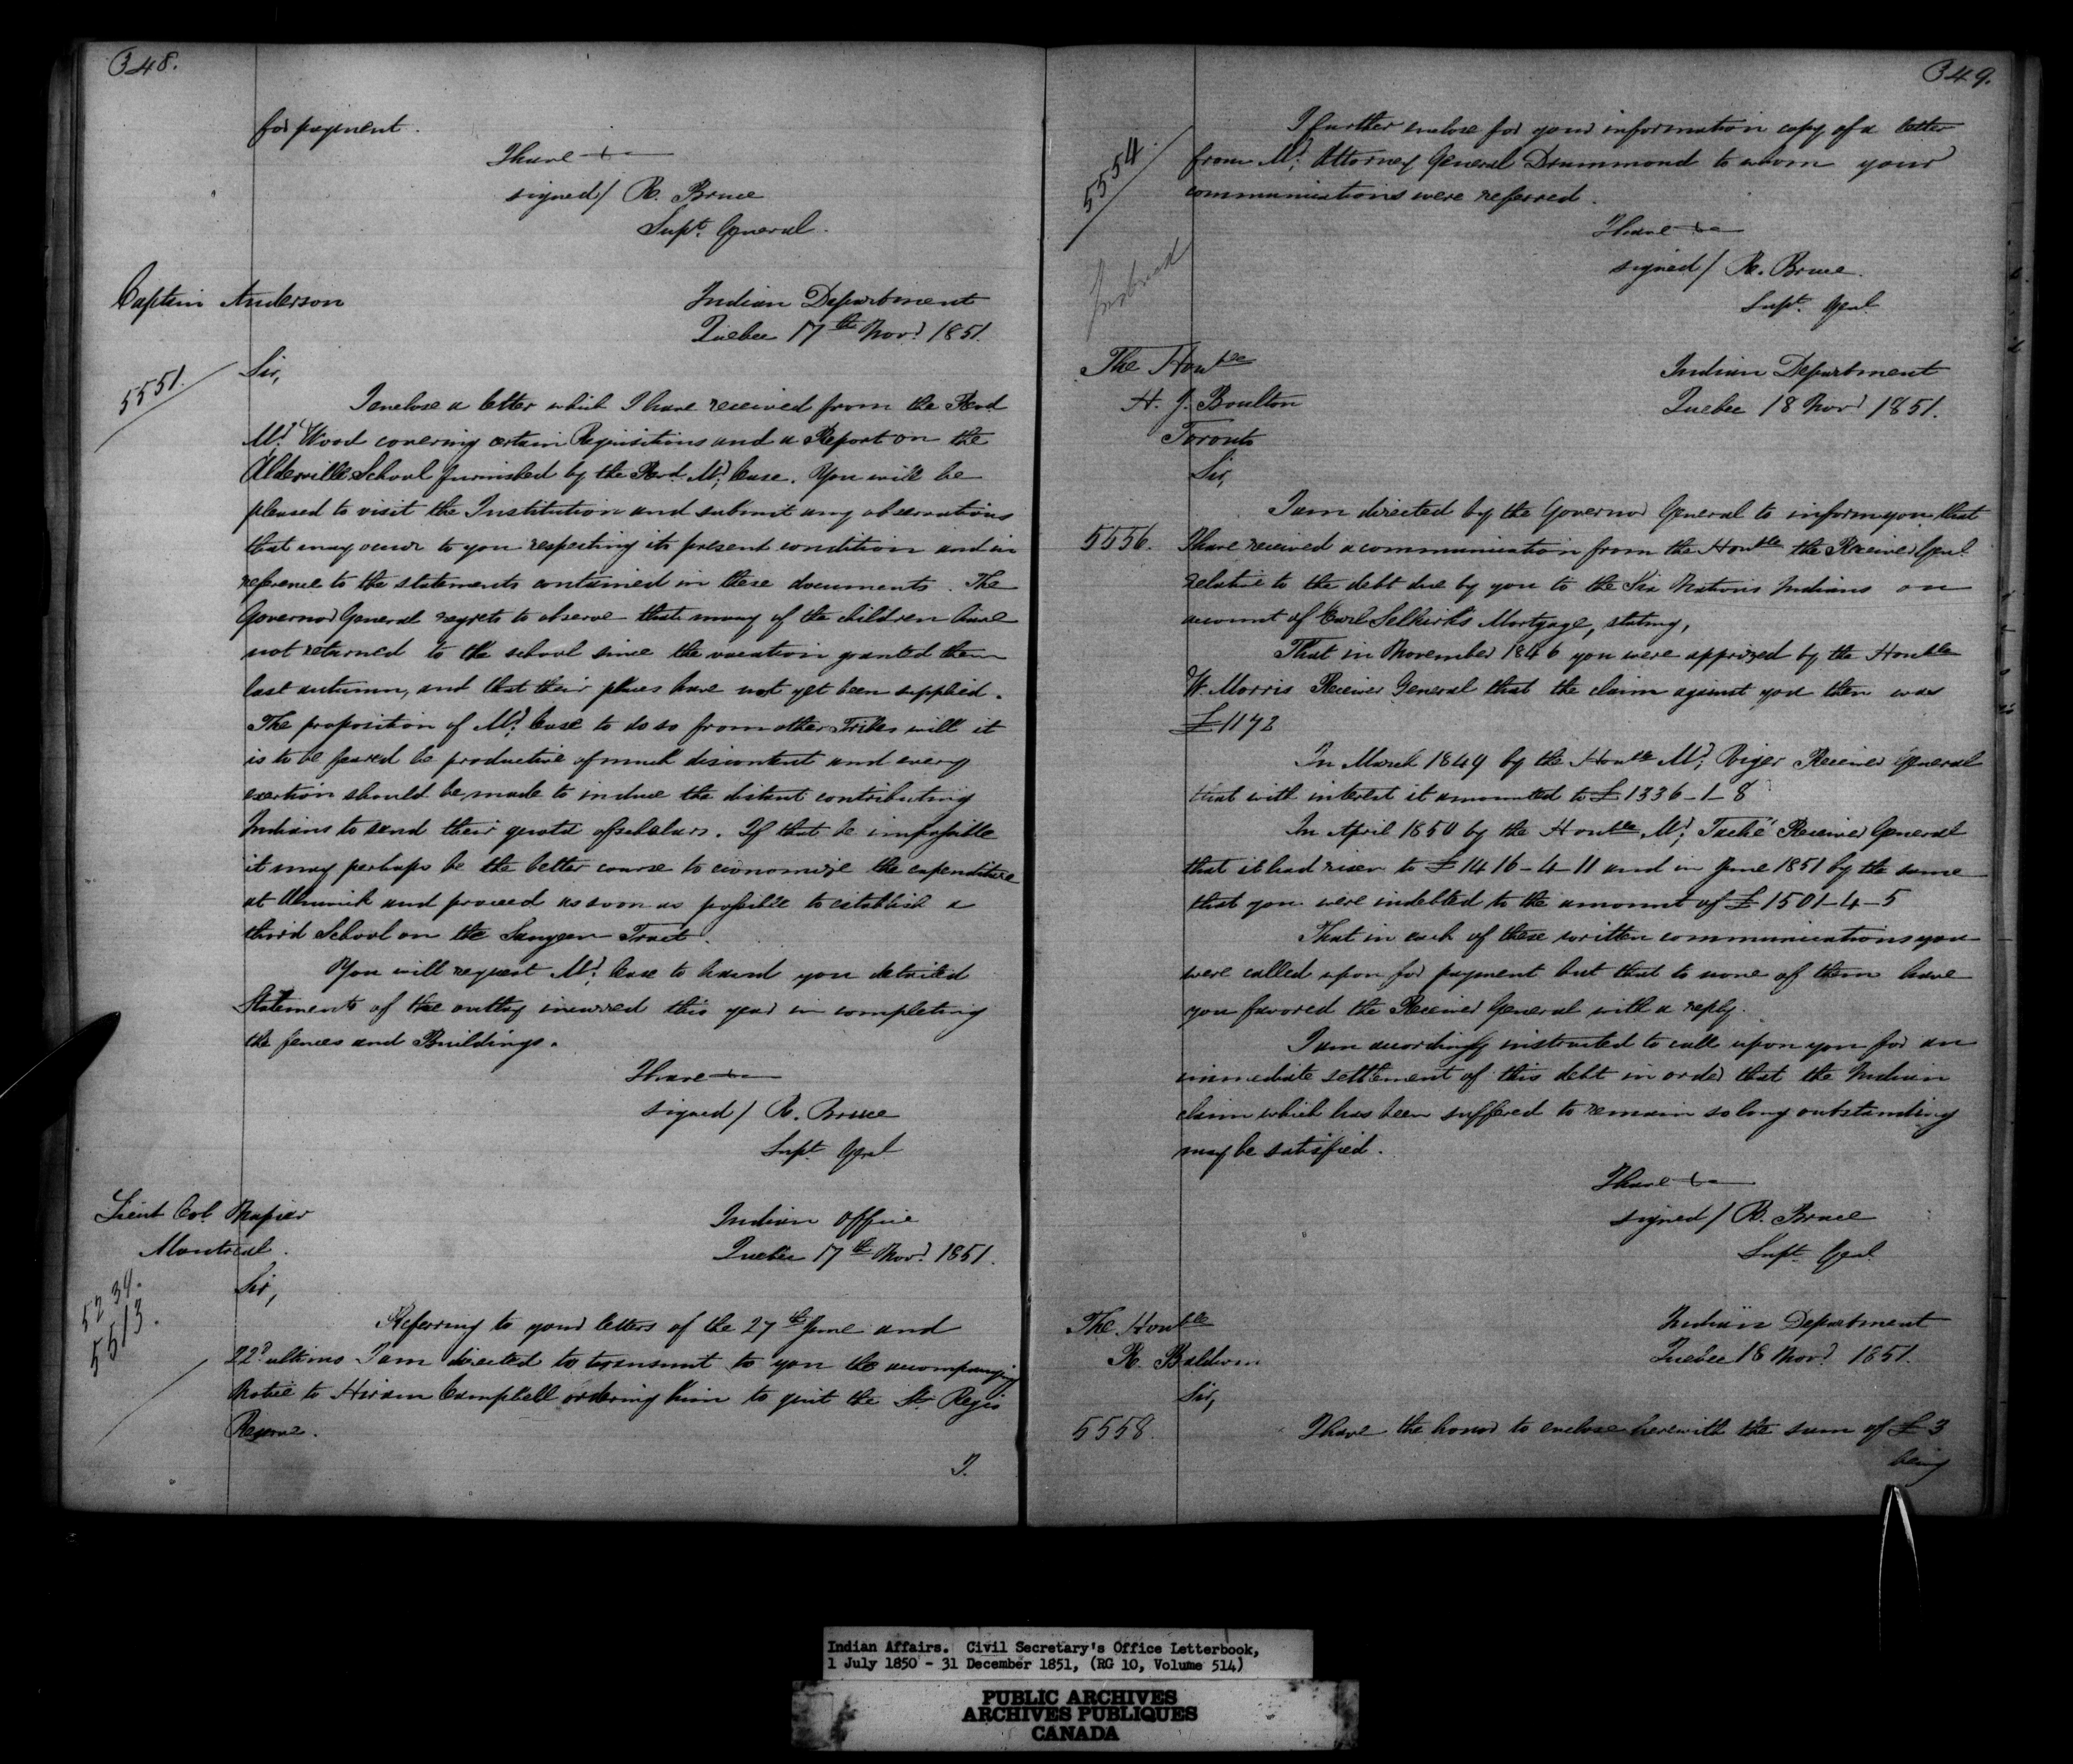 348.
for payment.
I have &c
signed/ R. Bruce
Supt. General.
Captain Anderson
Indian Department
Quebec 17th Novr 1851.
5551.
Sir,
I enclose a letter which I have received from the Revd
Mr Wood covering certain Requisitions and a Report on the
Alderville School furnished by the Revd. Mr. Case. You will be
pleased to visit the Institution and submit any observations
that may occur to you respecting its present condition and in
reference to the statements contained in these documents. The
Governor General regrets to observe that many of the children have
not returned to the school since the vacation granted them
last autumn, and that their places have not yet been supplied.
The proposition of Mr. Case to do so from other Tribes will it
is to be feared be productive of much discontent and every
exertion should be made to induce the distant contributing
Indians to send their quota of scholars. If that be impossible
it may perhaps be the better course to economize the expenditure
at Alnwick and proceed as soon as possible to establish a
third School on the Saugeen Tract.
You will request Mr. Case to hand you detailed
Statements of the outlay incurred this year in completing
the fences and Buildings.
I have &c
signed/ R. Bruce
Supt Genl
Lieut Col. Napier
Montreal.
Indian Office
Quebec 17th Novr. 1851.
5234.
5513.
Sir,
Referring to your letters of the 27th June and
22d ultimo I am directed to transmit to you the accompanying
Notice to Hiram Campbell ordering him to quit the St. Regis
Reserve.
I.
349.
5554.
I further enclose for your information copy of a letter
from Mr. Attorney General Drummond to whom your
communications were referred.
I have &c
signed/ R. Bruce.
Supt. Genl
The Honble
H. J. Boulton
Toronto
Indian Department
Quebec 18 Novr 1851.
Sir,
I am directed by the Governor General to inform you that
5556.
I have received a communication from the Honble the Receiver Genl
relative to the debt due by you to the Six Nations Indians on
account of Earl Selkirk's Mortgage, stating,
That in November 1846 you were apprized by the Honble
W. Morris Receiver General that the claim against you then was
£1172
In March 1849 by the Honble Mr. Viger Receiver General
that with interest it amounted to £1336-1-8
In April 1850 by the Honble Mr. Taché Receiver General
that it had risen to £1416-4-11 and in June 1851 by the same
that you were indebted to the amount of £1501-4-5
That in each of these written communications you
were called upon for payment but that to none of them have
you favored the Receiver General with a reply.
I am accordingly instructed to call upon you for an
immediate settlement of this debt in order that the Indian
claim which has been suffered to remain so long outstanding
may be satisfied.
I have &c
signed/ R. Bruce
Supt Genl
The Honble
R. Baldwin
Indian Department
Quebec 18 Novr 1851.
Sir,
5558.
I have the honor to enclose herewith the sum of £3
being
Indian Affairs. Civil Secretary's Office Letterbook,
1 July 1850 - 31 December 1851, (RG 10, Volume 514)
PUBLIC ARCHIVES
ARCHIVES PUBLIQUES
CANADA